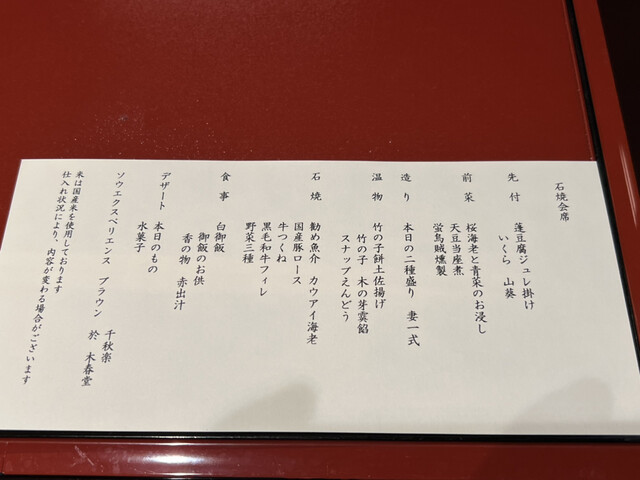 石焼会席
先付　蓬豆腐ジュレ掛け
いくら　山葵
前菜　桜海老と青菜のお浸し
天豆当座煮
蛍烏賊燻製
造り　本日の二種盛り　妻一式
温物　竹の子餅土佐揚げ
竹の子　木の芽霙餡
スナップえんどう
石焼　勧め魚介　カウアイ海老
国産豚ロース
牛つくね
黒毛和牛フィレ
野菜三種
食事　白御飯
御飯のお供
香の物　赤出汁
デザート　本日のもの
水菓子
ソウエクスペリエンス　ブラウン　千秋楽
於　木春堂
米は国産米を使用しております
仕入れ状況により、内容が変わる場合がございます